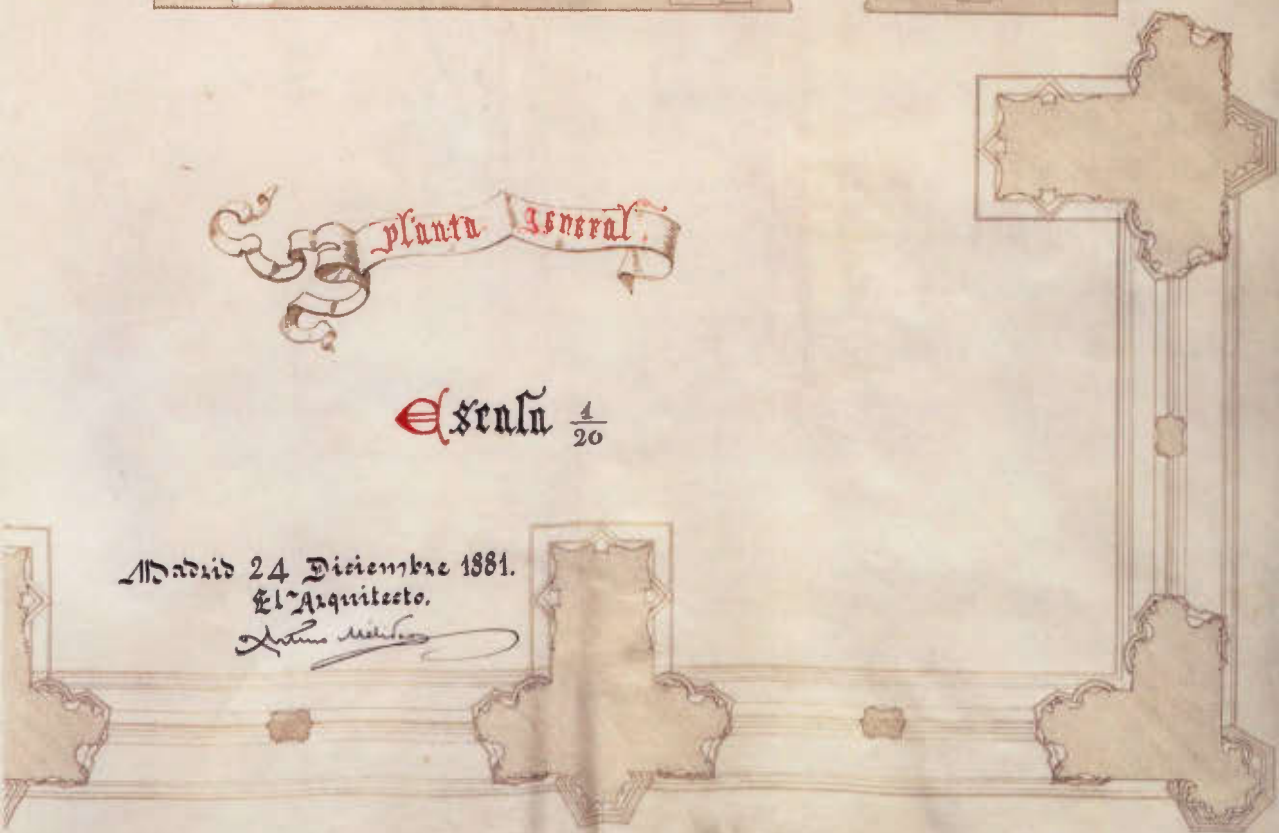 planta general
Escala 1/20
Madrid 24 Diciembre 1881.
El Arquitecto.
Arturo Mélida